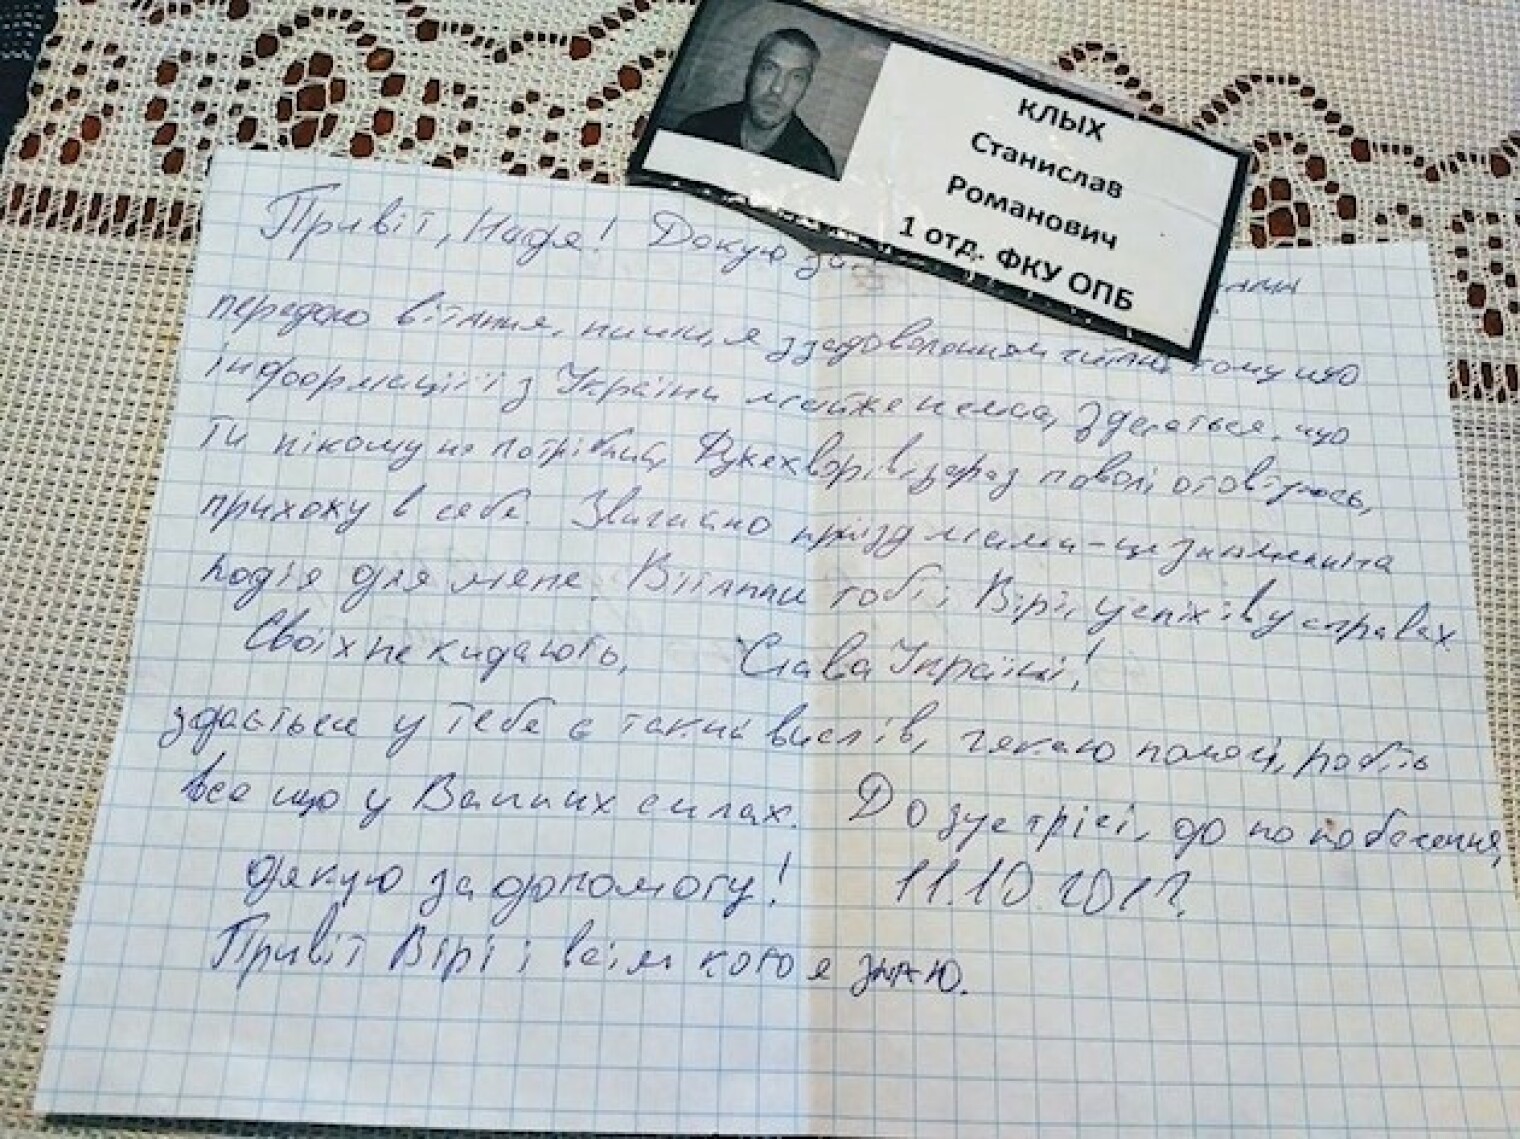 КЛЫХ
Станислав
Романович
1 отд. ФКУ ОПБ
Привіт, Надя! Дякую за
передаю вітання, пиши, я з задоволенням читаю, тому що
інформації з України майже нема, здається, що
ти нікому не потрібний, Дуже хворів, зараз поволі оговтуюсь,
прихожу в себе. Звичайно приїзд мами - це знаменита
подія для мене. Вітання тобі і Вірі, успіхів у справах
Своїх не кидають, Слава Україні!
здається у тебе є такий вислів, чекаю помочі, робіть
все що у Ваших силах. До зустрічі, до побачення,
дякую за допомогу! 11.10.2017.
Привіт Вірі і всім кого я знаю.